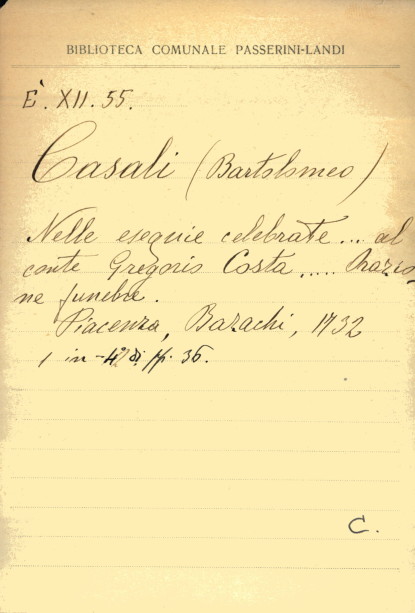 BIBLIOTECA COMUNALE PASSERINI-LANDI
E'. XII. 55.
Casali (Bartolomeo)
Nelle esequie celebrate... al
conte Gregorio Costa..... Orazio-
ne funebre.
Piacenza, Bazachi, 1732
1 in-4º di pp. 36.
C.